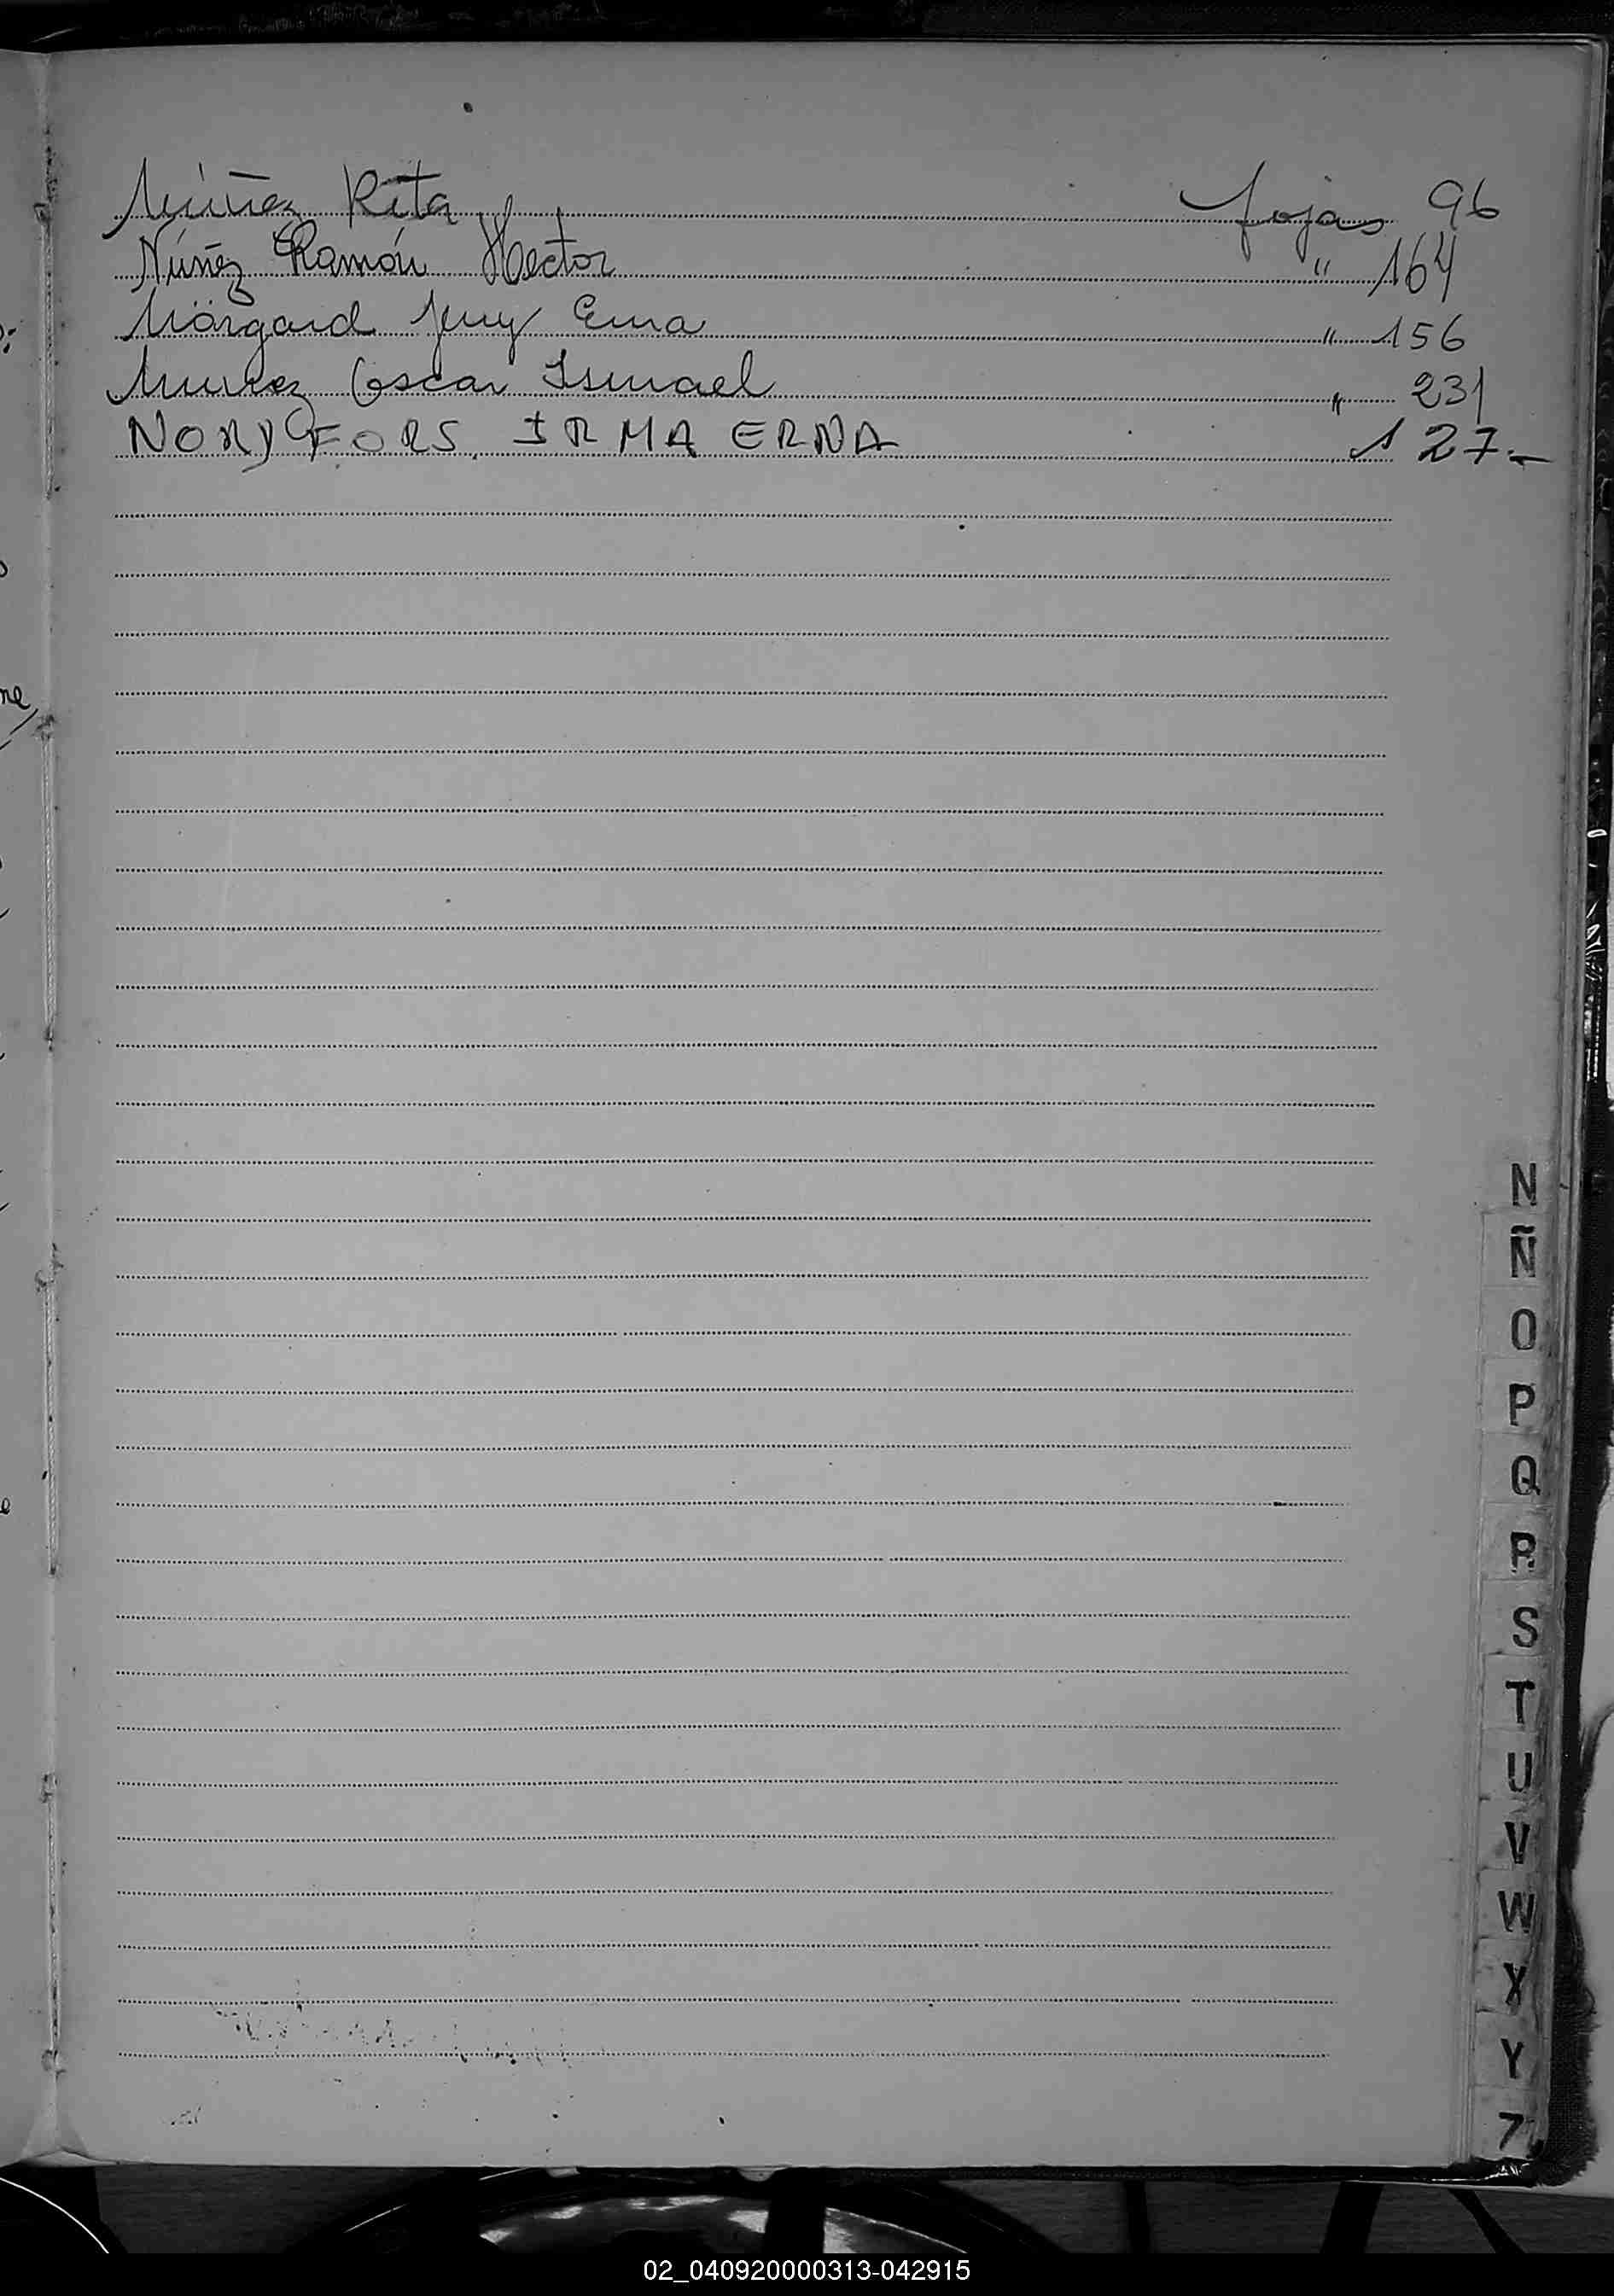 Núñez Rita fojas 96
Núñez Ramón Hector " 164
Nörgard Jeny Ema " 156
Nuñez Oscar Ismael " 231
NORDFORS, IRMA ERNA 127.-
N
Ñ
O
P
Q
R
S
T
U
V
W
X
Y
Z
02_040920000313-042915